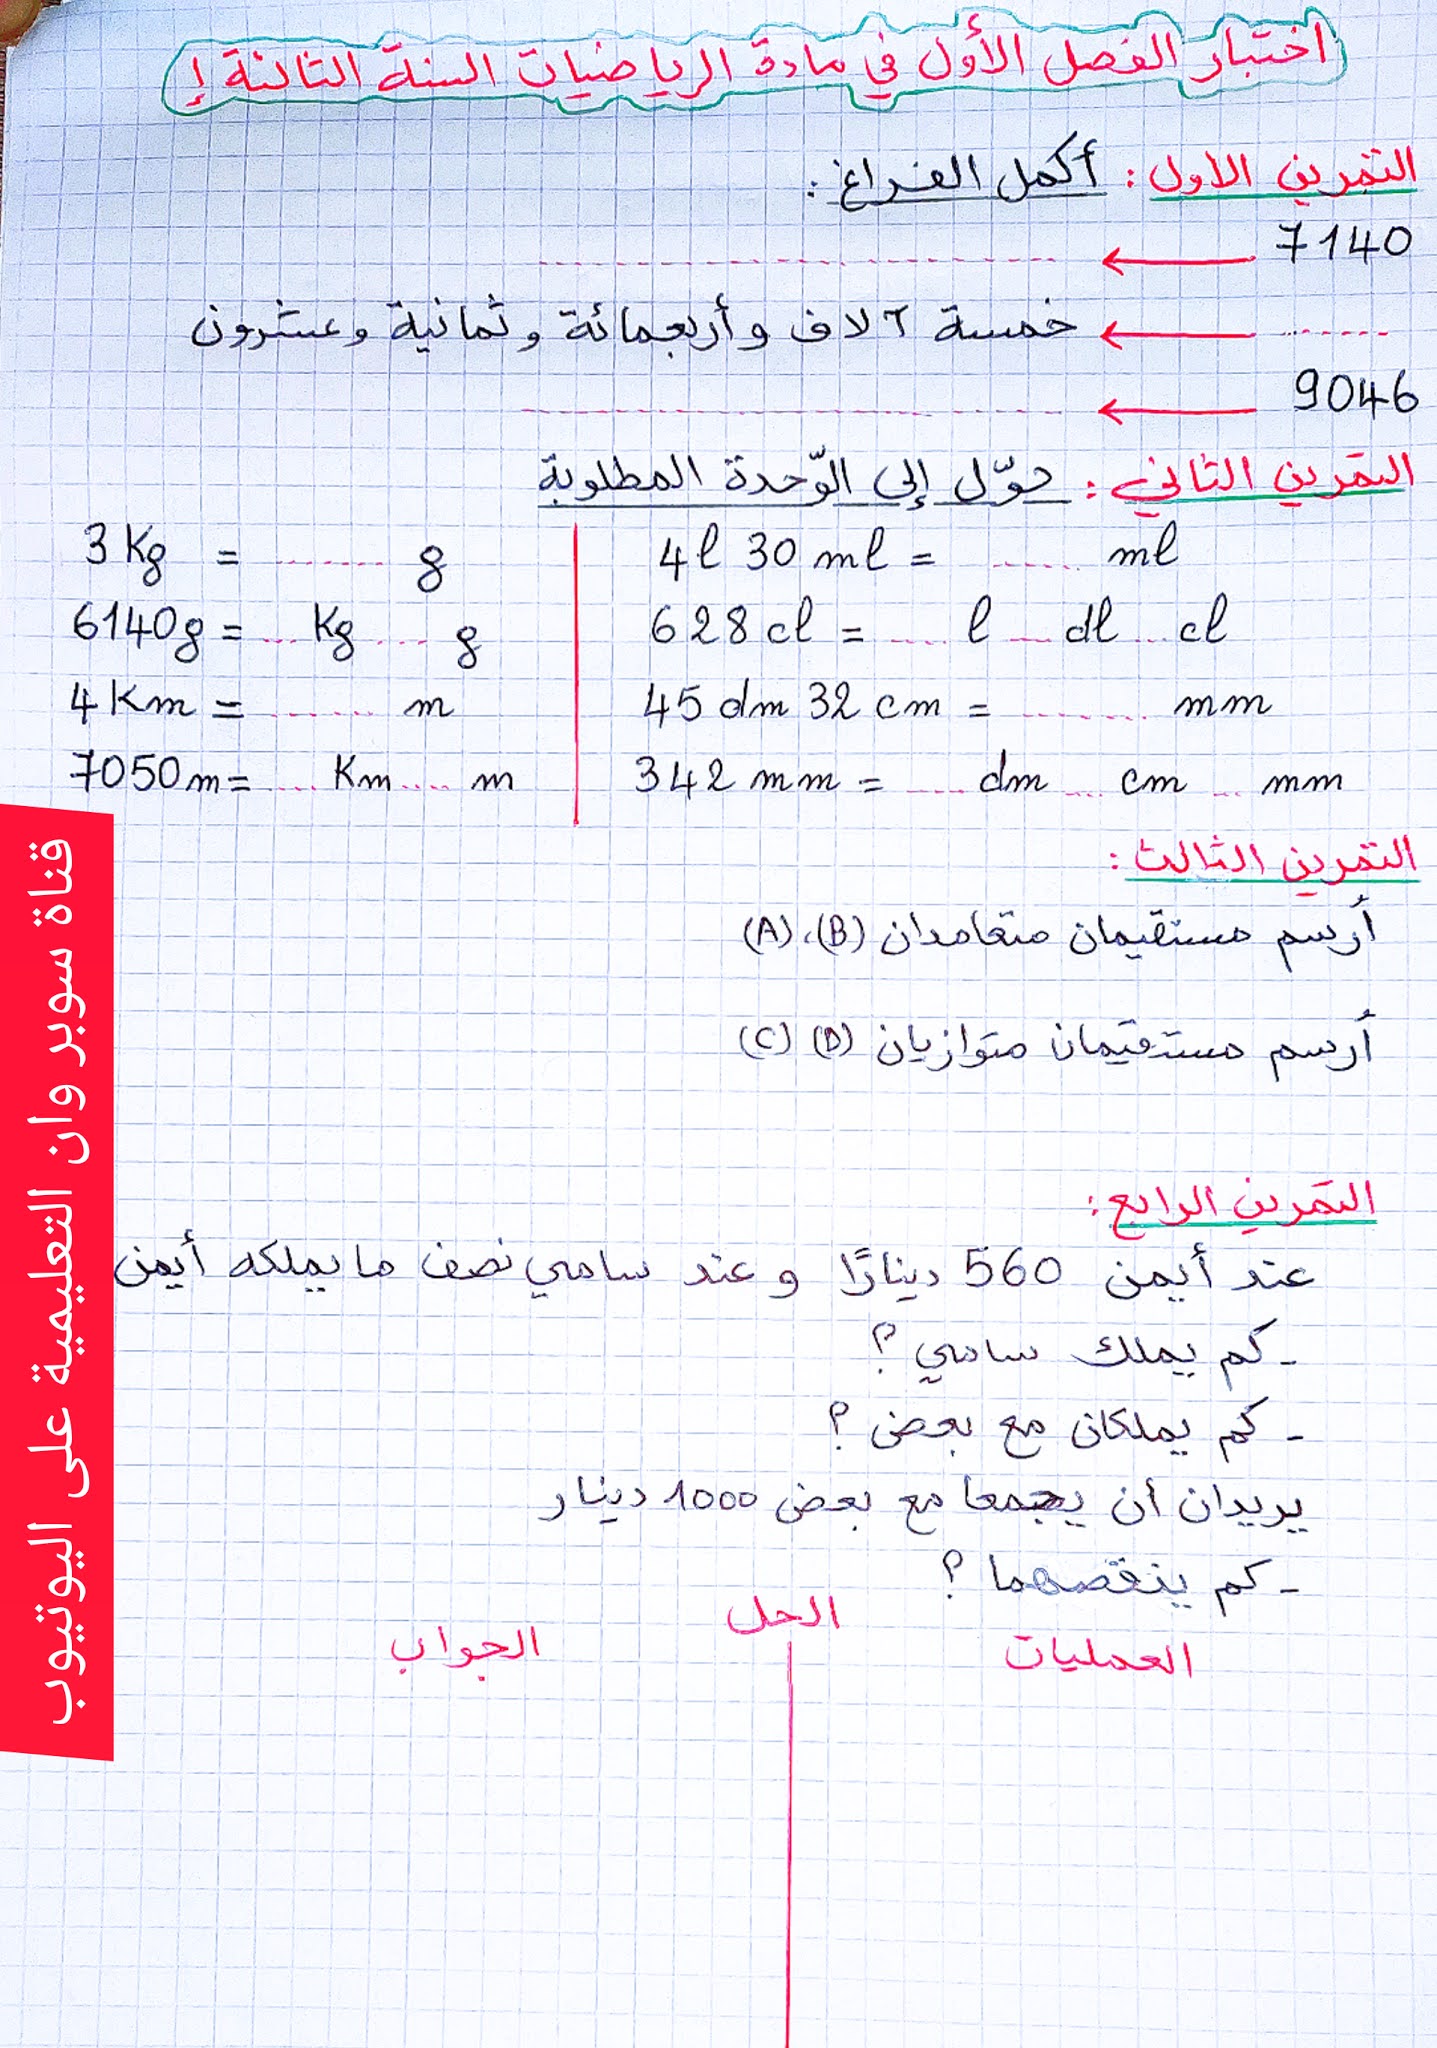 اختبار الفصل الأول في مادة الرياضيات السنة الثالثة إ
التمرين الأول : أكمل الفراغ :
7140 ← ....................
........ ← خمسة آلاف وأربعمائة وثمانية وعشرون
9046 ← ....................
التمرين الثاني : حوّل إلى الوّحدة المطلوبة
3 Kg = ........ g
6140g = ... Kg .... g
4 Km = ....... m
7050m = .... Km .... m
4 l 30 ml = ...... ml
628 cl = .... l .... dl ... cl
45 dm 32 cm = ........ mm
342 mm = .... dm ... cm ... mm
التمرين الثالث :
أرسم مستقيمان متعامدان (B)، (A)
أرسم مستقيمان متوازيان (D) (C)
التمرين الرابع :
عند أيمن 560 دينارًا وعند سامي نصف ما يملكه أيمن
- كم يملك سامي ؟
- كم يملكان مع بعض ؟
يريدان أن يجمعا مع بعض 1000 دينار
- كم ينقصهما ؟
الحل
العمليات
الجواب
قناة سوبر وان التعليمية على اليوتيوب